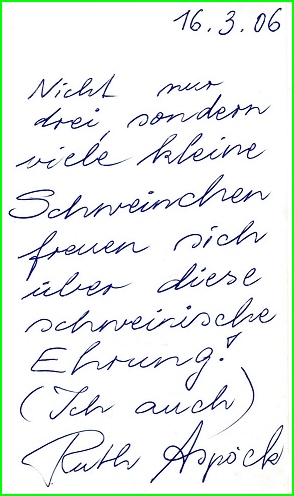 16.3.06
Nicht nur
drei, sondern
viele kleine
Schweinchen
freuen sich
über diese
schweinische
Ehrung!
(Ich auch)
Ruth Aspöck